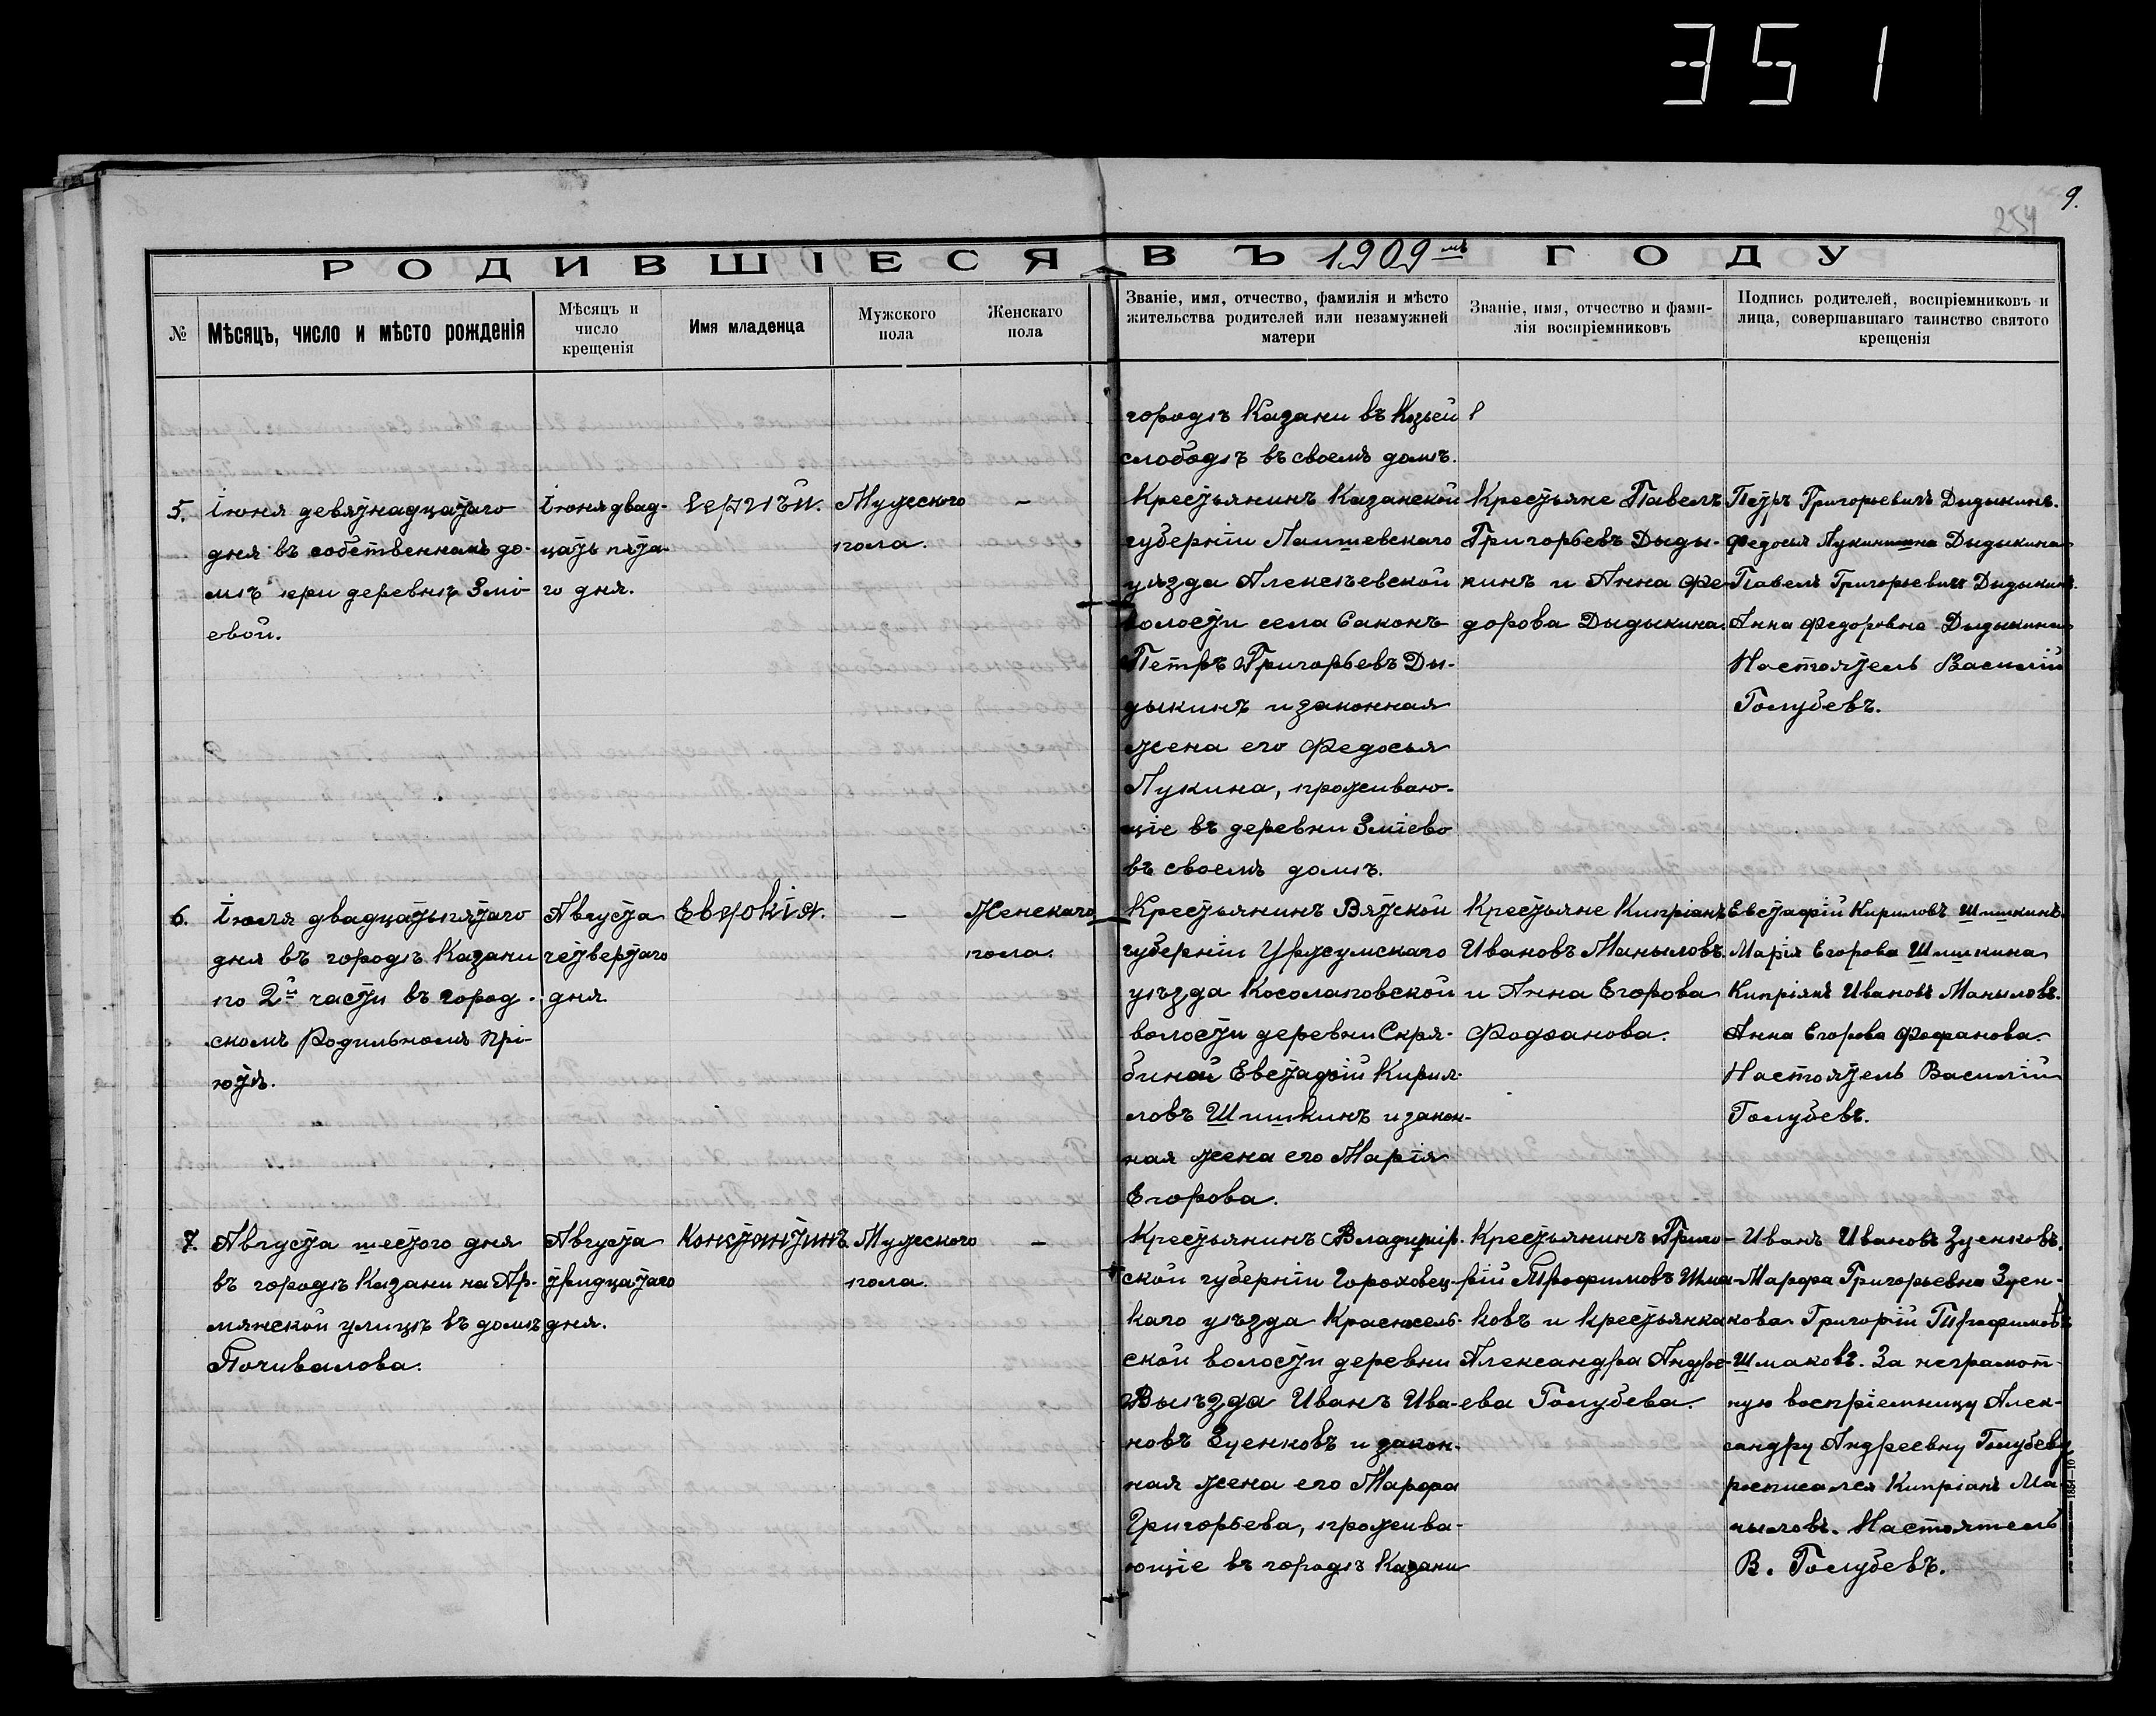 351
9.
254
РОДИВШІЕСЯ ВЪ 1909мъ ГОДУ
№
Мѣсяцъ, число и мѣсто рожденія
Мѣсяцъ и
число
крещенія
Имя младенца
Мужского
пола
Женскаго
пола
Званіе, имя, отчество, фамилія и мѣсто
жительства родителей или незамужней
матери
Званіе, имя, отчество и фами-
лія воспріемниковъ
Подпись родителей, воспріемниковъ и
лица, совершавшаго таинство святого
крещенія
городѣ Казани въ Козьей
слободѣ въ своемъ домѣ.
5.
Іюня девятнадцатаго
дня въ собственномъ до-
мѣ при деревнѣ Змі-
евой.
Іюня двад-
цать пята-
го дня.
Сергѣй.
Мужеского
пола.
–
Крестьянинъ Казанской
губерніи Лаишевскаго
уѣзда Алексѣевской
волости села Саконъ
Петръ Григорьевъ Ды-
дыкинъ и законная
жена его Федосья
Лукина, проживаю-
щіе въ деревни Зміево
въ своемъ домѣ.
Крестьяне Павелъ
Григорьевъ Дыды-
кинъ и Анна Фе-
дорова Дыдыкина.
Петръ Григорьевичъ Дыдыкинъ.
Федосья Лукинишна Дыдыкина
Павелъ Григорьевичъ Дыдыкинъ.
Анна Федоровна Дыдыкина
Настоятель Василій
Голубевъ.
6.
Іюля двадцатьпятаго
дня въ городѣ Казани
по 2й части въ город-
скомъ Родильномъ прі-
ютѣ.
Августа
четвертаго
дня
Евдокія.
–
Женскаго
пола.
Крестьянинъ Вятской
губерніи Уржумскаго
уѣзда Косолаповской
волости деревни Скря-
биной Евстафій Кирил-
ловъ Шишкинъ и закон-
ная жена его Марія
Егорова.
Крестьяне Кипріанъ
Ивановъ Маныловъ
и Анна Егорова
Фофанова.
Евстафій Кириловъ Шишкинъ.
Марія Егорова Шишкина
Кипріянъ Ивановъ Маныловъ.
Анна Егорова Фофанова.
Настоятель Василій
Голубевъ.
7.
Августа шестого дня
въ городѣ Казани на Ар-
мянской улицѣ въ домѣ
Почивалова.
Августа
тридцатаго
дня.
Константинъ.
Мужеского
пола.
–
Крестьянинъ Владимір-
ской губерніи Гороховец-
каго уѣзда Красносель-
ской волости деревни
Выѣзда Иванъ Ива-
новъ Зуенковъ и закон-
ная жена его Марфа
Григорьева, прожива-
ющіе въ городѣ Казани
Крестьянинъ Григо-
рій Трофимовъ Шма-
ковъ и крестьянка
Александра Андре-
ева Голубева.
Иванъ Ивановъ Зуенковъ.
Марфа Григорьевна Зуен-
кова. Григорій Трофимовъ
Шмаковъ. За неграмот-
ную воспріемницу Алек-
сандру Андреевну Голубеву
росписался Кипріанъ Ма-
ныловъ. Настоятель
В. Голубевъ.